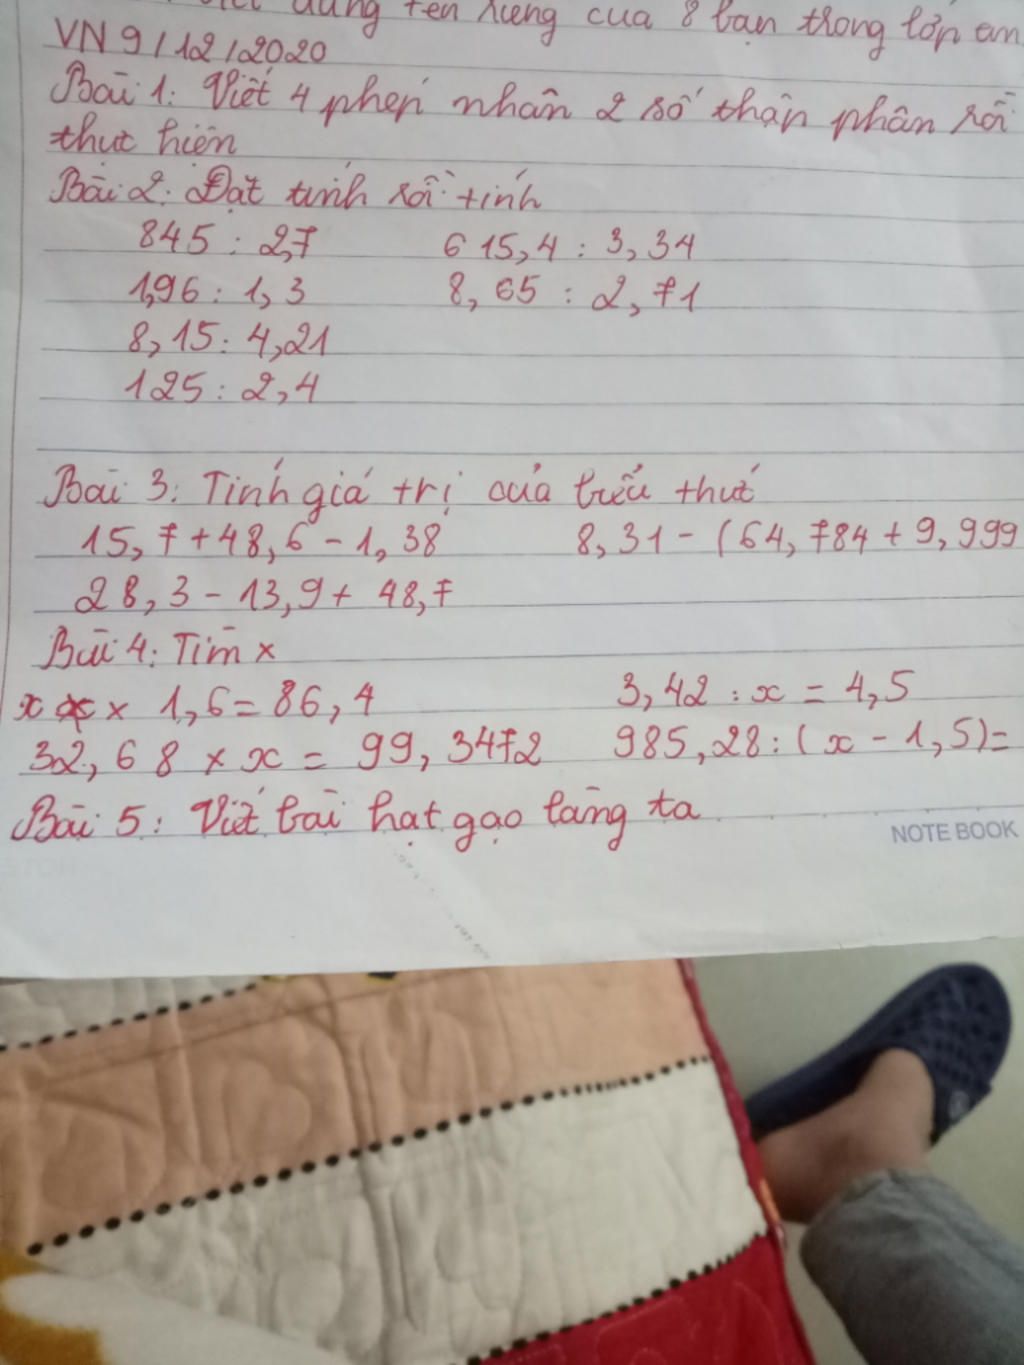 viết đúng tên riêng của 8 bạn trong lớp em
VN 9/12/2020
Bài 1: Viết 4 phép nhân 2 số thập phân rồi
thực hiện
Bài 2: Đặt tính rồi tính
845 : 2,7 615,4 : 3,34
1,96 : 1,3 8,65 : 2,71
8,15 : 4,21
125 : 2,4
Bài 3: Tính giá trị của biểu thức
15,7 + 48,6 - 1,38 8,31 - (64,784 + 9,999
28,3 - 13,9 + 48,7
Bài 4: Tìm x
x × 1,6 = 86,4 3,42 : x = 4,5
32,68 × x = 99,3472 985,28 : (x - 1,5) =
Bài 5: Viết bài hạt gạo làng ta
NOTE BOOK